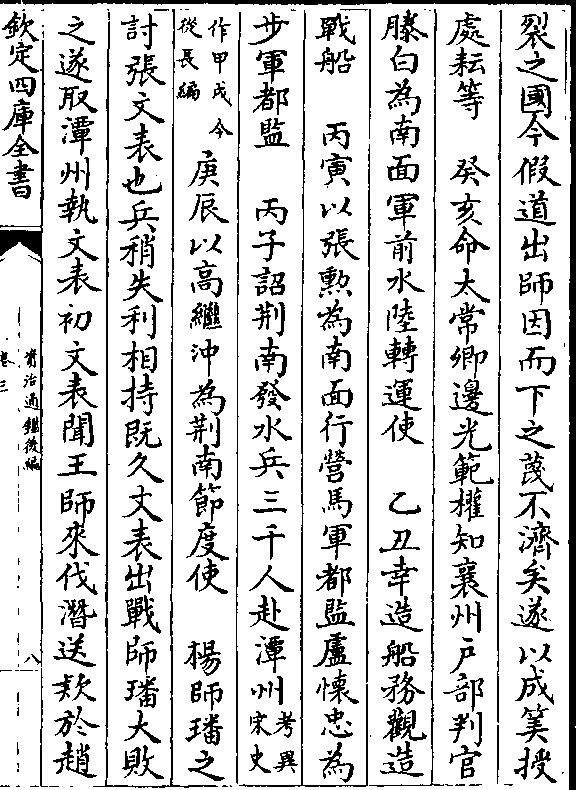 裂之國今假道出師因而下之蔑不濟矣遂以成筭授
處耘等　癸亥命太常卿邊光範權知襄州戶部判官
滕白為南面軍前水陸轉運使　乙丑幸造船務觀造
戰船　丙寅以張勲為南面行營馬軍都監盧懷忠為
步軍都監　丙子詔荆南發水兵三千人赴潭州考異宋史
作甲戌今從長編　庚辰以高繼沖為荆南節度使　楊師璠之
討張文表也兵稍失利相持既久文表出戰師璠大敗
之遂取潭州執文表初文表聞王師來伐潛送欵於趙
欽定四庫全書
資治通鑑後編
卷三
八